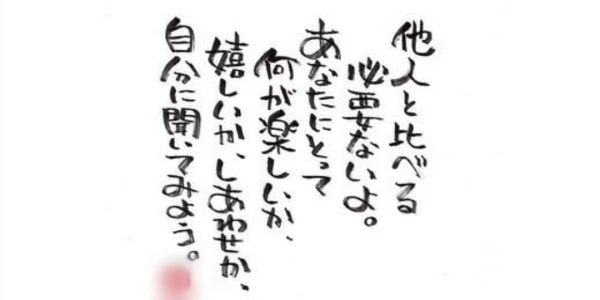 他人と比べる
必要ないよ。
あなたにとって
何が楽しいか、
嬉しいか、しあわせか、
自分に聞いてみよう。